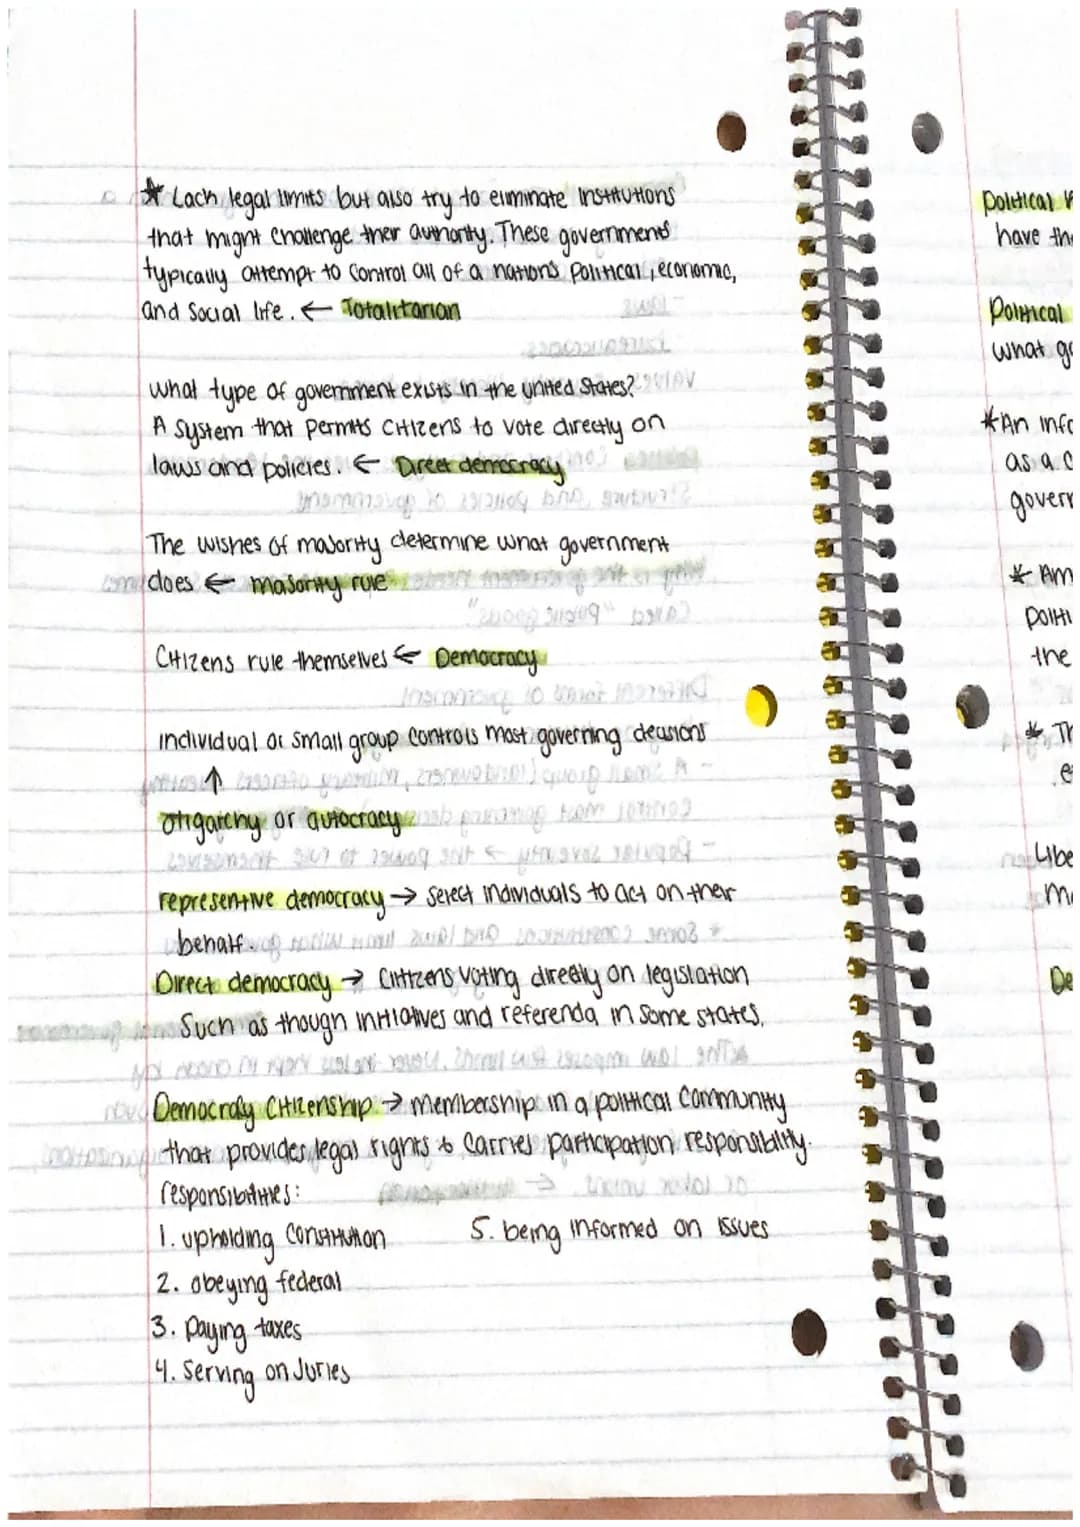 * Lack legal limits but also try to eliminate Institutions
that might challenge their authority. These governments
typically attempt to control all of a nation's political, economic,
and social life. ← Totalitarian
what type of government exists in the united States?
A system that permits citizens to vote directly on
laws and policies. ← Direct democracy
The wishes of majority determine what government
does ← majority rule
Citizens rule themselves ← Democracy
individual or small group controls most governing decisions
↑
oligarchy or autocracy
representive democracy → select individuals to act on their
behalf.
Direct democracy → Citizens voting directly on legislation
Such as though initiatives and referenda in some states.
Democracy Citizenship → membership in a political community
that provides legal rights & carries participation responsiblity.
responsibilities:
1. upholding constitution
5. being informed on issues
2. obeying federal
3. paying taxes
4. Serving on Juries
Political
have
Political
what
*An
as a
govern
* Am
the
* Th